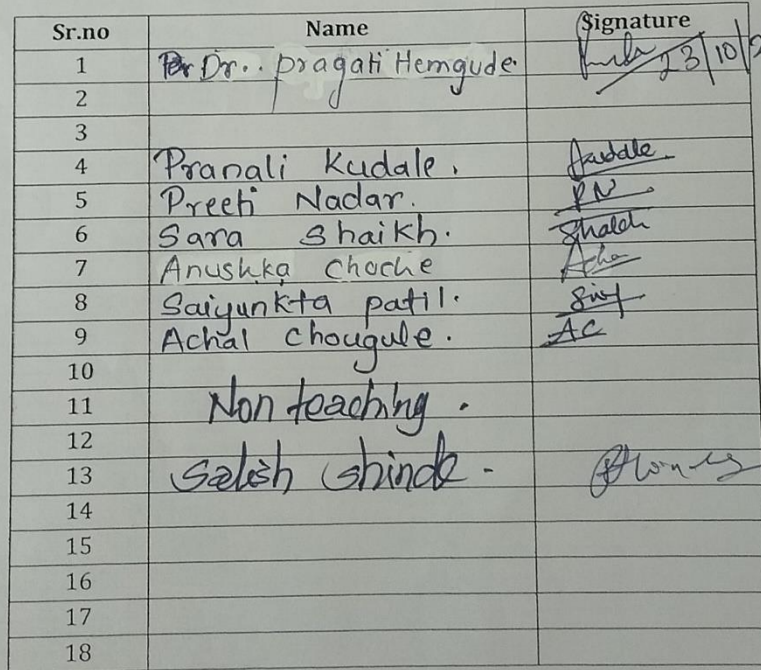 Sr.no Name Signature
1 Dr.. Pragati Hemgude. 23/10/2
2
3
4 Pranali Kudale. Kudale
5 Preeti Nadar. PN
6 Sara Shaikh. Shaikh
7 Anushka Choche
8 Saiyunkta patil.
9 Achal Chougule. AC
10
11 Non teaching.
12
13 Satish Shinde.
14
15
16
17
18